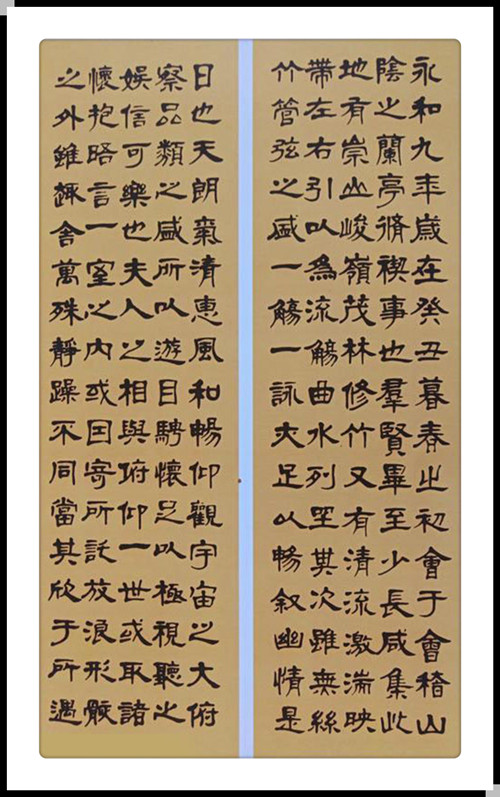 永和九年歲在癸丑暮春之初會于會稽山
陰之蘭亭脩禊事也羣賢畢至少長咸集此
地有崇山峻嶺茂林修竹又有清流激湍映
帶左右引以為流觴曲水列坐其次雖無絲
竹管弦之盛一觴一詠亦足以暢叙幽情是
日也天朗氣清惠風和暢仰觀宇宙之大俯
察品類之盛所以遊目騁懷足以極視聽之
娛信可樂也夫人之相與俯仰一世或取諸
懷抱晤言一室之內或因寄所託放浪形骸
之外雖趣舍萬殊靜躁不同當其欣于所遇